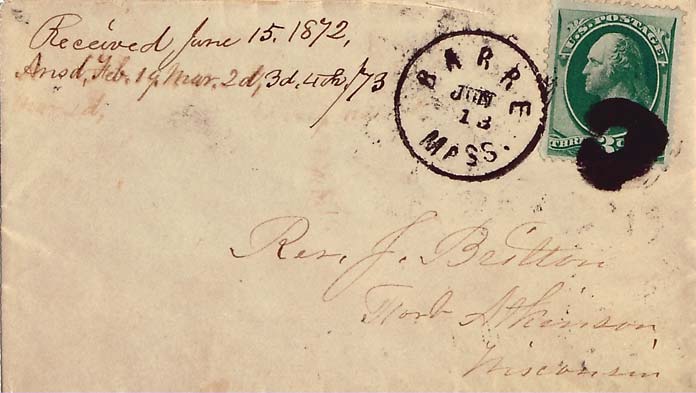 Received, June 15. 1872,
Ansd, Feb. 19, Mar. 2d, 3d. 4th, /73
BARRE
JUN
13
MASS.
U.S. POSTAGE
THREE 3
Rev. J. Britton
Fort Atkinson,
Wisconsin